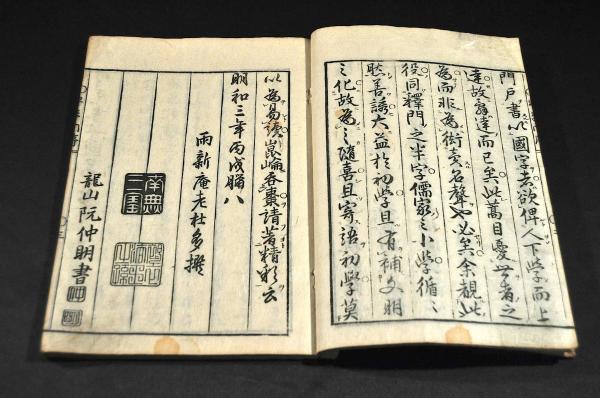 門戸書以國字者欲俾人下學而上
達故辭達而已矣此蒿目憂世者之
為而非為衒賣名聲也必矣余観此
役同釋門之半字儒家之小學循〻
然善誘大益於初學且有補文明
之化故為之随喜且寄語初學莫
以為易讀崑崙吞棗請著精彩云
明和三年丙戌臈八
雨新庵老杜多撰
龍山阮仲明書